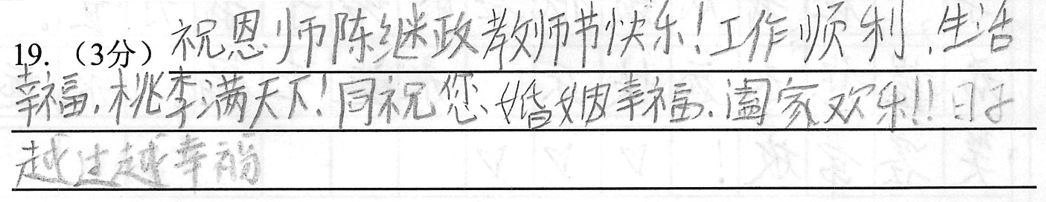 19.（3分）祝恩师陈继政教师节快乐！工作顺利，生活
幸福，桃李满天下！同祝您、婚姻幸福，阖家欢乐！！日子
越过越幸福